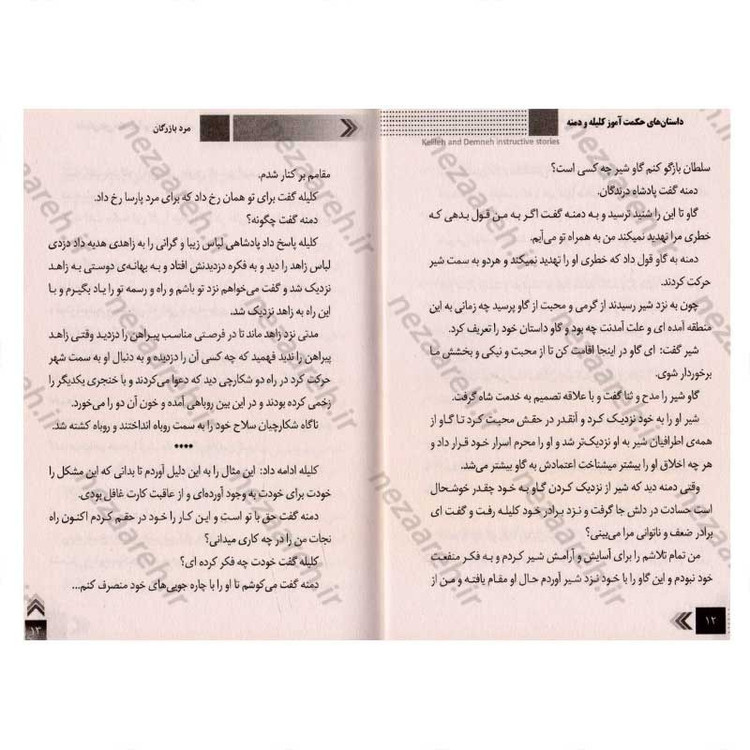 داستان‌های حکمت آموز کلیله و دمنه
Kelileh and Demneh instructive stories
سلطان بازگو کنم گاو شیر چه کسی است؟
دمنه گفت پادشاه درندگان.
گاو تا این را شنید ترسید و به دمنه گفت اگر به من قول بدهی که
خطری مرا تهدید نمیکند من به همراه تو می‌آیم.
دمنه به گاو قول داد که خطری او را تهدید نمیکند و هردو به سمت شیر
حرکت کردند.
چون به نزد شیر رسیدند از گرمی و محبت از گاو پرسید چه زمانی به این
منطقه آمده ای و علت آمدنت چه بود و گاو داستان خود را تعریف کرد.
شیر گفت: ای گاو در اینجا اقامت کن تا از محبت و نیکی و بخشش ما
برخوردار شوی.
گاو شیر را مدح و ثنا گفت و با علاقه تصمیم به خدمت شاه گرفت.
شیر او را به خود نزدیک کرد و آنقدر در حقش محبت کرد تا گاو از
همه‌ی اطرافیان شیر به او نزدیک‌تر شد و او را محرم اسرار خود قرار داد و
هر چه اخلاق او را بیشتر میشناخت اعتمادش به گاو بیشتر می‌شد.
وقتی دمنه دید که شیر از نزدیک کردن گاو به خود چقدر خوشحال
است حسادت در دلش جا گرفت و نزد برادر خود کلیله رفت و گفت ای
برادر ضعف و ناتوانی مرا می‌بینی؟
من تمام تلاشم را برای آسایش و آرامش شیر کردم و به فکر منفعت
خود نبودم و این گاو را با خود نزد شیر آوردم حال او مقام یافته و من از
۱۲
مرد بازرگان
مقامم بر کنار شدم.
کلیله گفت برای تو همان رخ داد که برای مرد پارسا رخ داد.
دمنه گفت چگونه؟
کلیله پاسخ داد پادشاهی لباس زیبا و گرانی را به زاهدی هدیه داد دزدی
لباس زاهد را دید و به فکره دزدیدنش افتاد و به بهانه‌ی دوستی به زاهد
نزدیک شد و گفت می‌خواهم نزد تو باشم و راه و رسمه تو را یاد بگیرم و با
این راه به زاهد نزدیک شد.
مدتی نزد زاهد ماند تا در فرصتی مناسب پیراهن را دزدید وقتی زاهد
پیراهن را ندید فهمید که چه کسی آن را دزدیده و به دنبال او به سمت شهر
حرکت کرد در راه دو شکارچی دید که دعوا می‌کردند و با خنجری یکدیگر را
زخمی کرده بودند و در این بین روباهی آمده و خون آن دو را می‌خورد.
ناگاه شکارچیان سلاح خود را به سمت روباه انداختند و روباه کشته شد.
****
کلیله ادامه داد: این مثال را به این دلیل آوردم تا بدانی که این مشکل را
خودت برای خودت به وجود آورده‌ای و از عاقبت کارت غافل بودی.
دمنه گفت حق با تو است و این کار را خود در حقم کردم اکنون راه
نجات من را در چه کاری میدانی؟
کلیله گفت خودت چه فکر کرده ای؟
دمنه گفت می‌کوشم تا او را با چاره جویی‌های خود منصرف کنم...
۱۳
nezaareh.ir